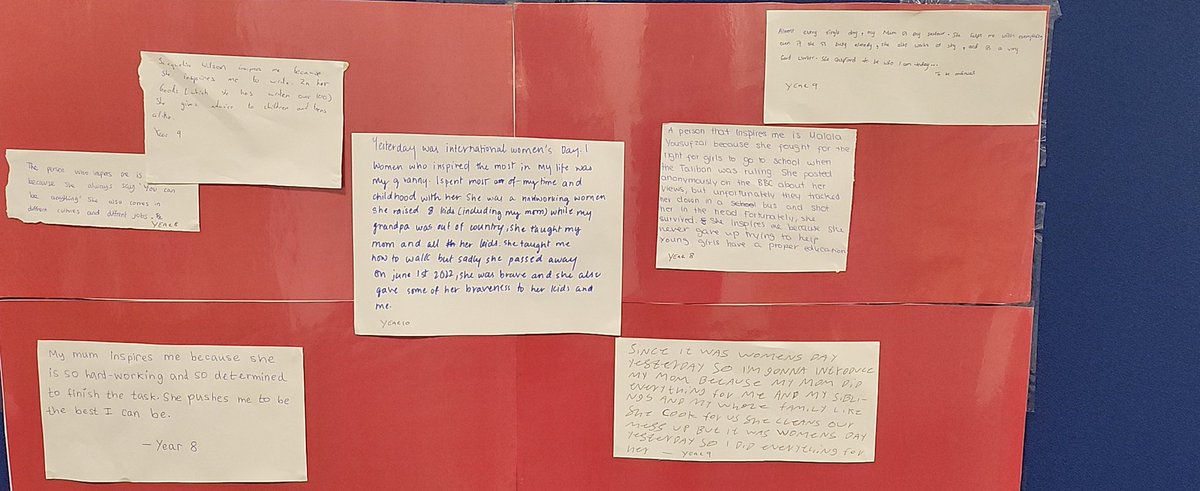 Jacqueline Wilson inspires me because
she inspires me to write. In her
books (which she has writen over 100)
She gives advice to children and teens
alike.
Year 9
The person who inspires me is
because she always say "You can
be anything" She also comes in
different cultures and diffrent jobs.
YEAR 8
Yesterday was international women's Day. I
Women who inspired the most in my life was
my granny. I spent most of my time and
childhood with her she was a working women
she raised 8 kids (including my mom) while my
grandpa was out of country, she taught my
mom and all her kids. she taught me
how to walk but sadly she passed away
on june 1st 2022, she was brave and she also
gave some of her braveness to her kids and
me.
Year 10
Almost every single day, my Mum is my saviour. She helps me with everything
even if she is busy already, she also works at sky, and is a very
hard worker. She inspired to be who I am today...
To be continued
Year 9
A person that inspires me is Malala
Yousufzai because she fought for the
right for girls to go to school when
the Taliban was ruling. She posted
anonymously on the BBC about her
views, but unfortunately they tracked
her down in a school bus and shot
her in the head. Fortunately, she
survived. & She inspires me because she
never gave up trying to help
young girls have a proper education
Year 8
My mum inspires me because she
is so hard-working and so determined
to finish the task. She pushes me to be
the best I can be.
- Year 8
SINCE IT WAS WOMENS DAY
YESTERDAY SO IM GONNA INTRODUCE
MY MOM BECAUSE MY MOM DID
EVERYTHING FOR ME AND MY SIBLI-
NGS AND MY WHOLE FAMILY LIKE
SHE COOK FOR US SHE CLEANS OUR
MESS UP BUT IT WAS WOMENS DAY
YESTERDAY SO I DID EVERYTHING FOR
HER - YEAR 9